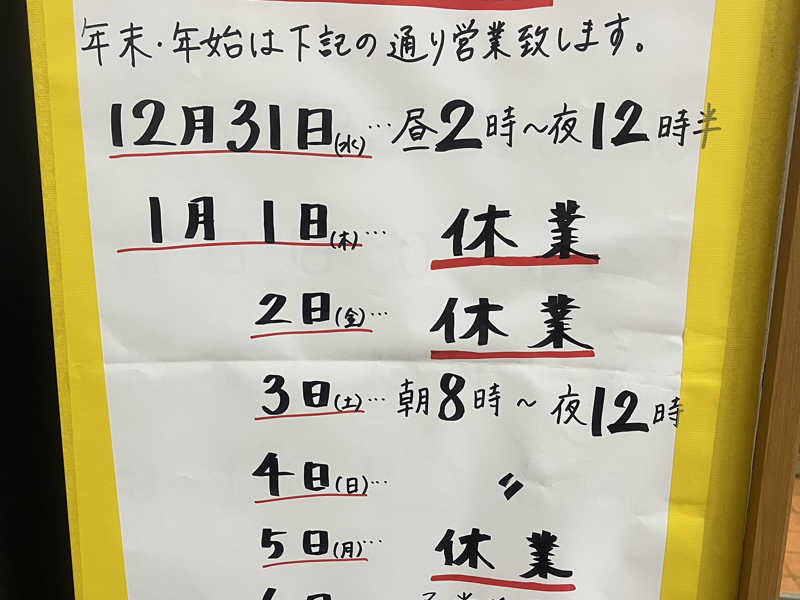 年末・年始は下記の通り営業致します。
12月31日(水)…昼2時〜夜12時半
1月1日(木)…休業
2日(金)…休業
3日(土)…朝8時〜夜12時
4日(日)…〃
5日(月)…休業